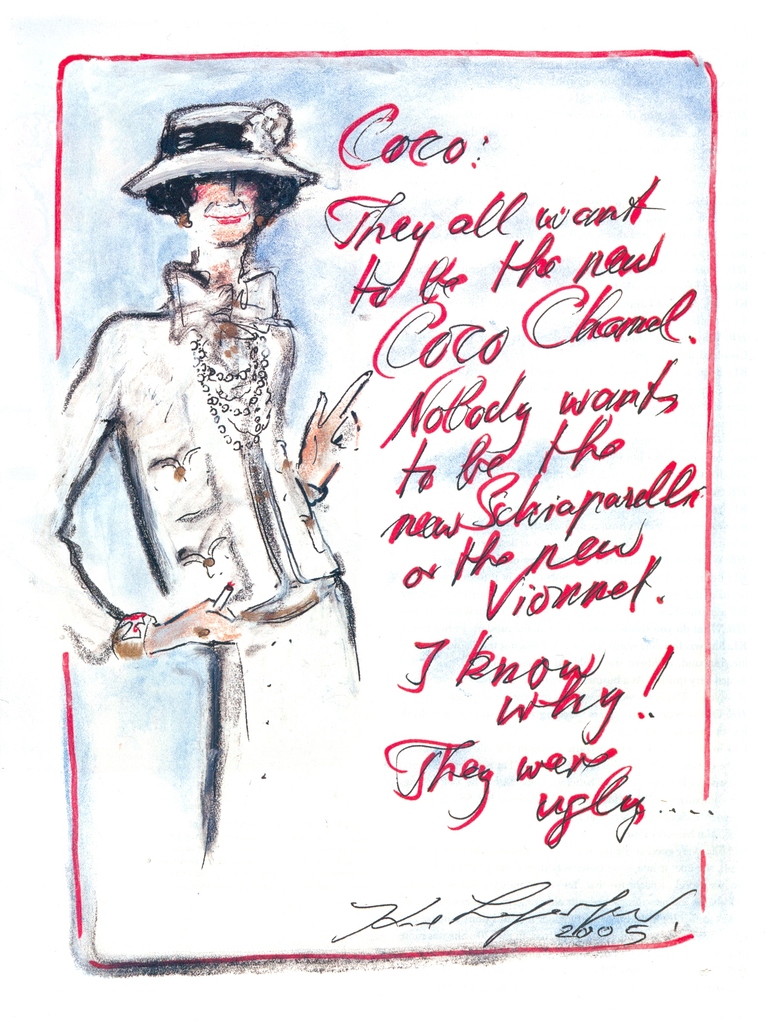 Coco:
They all want
to be the new
Coco Chanel.
Nobody wants
to be the
new Schiaparelli
or the new
Vionnet.
I know
why!
They were
ugly....
Karl Lagerfeld
2005